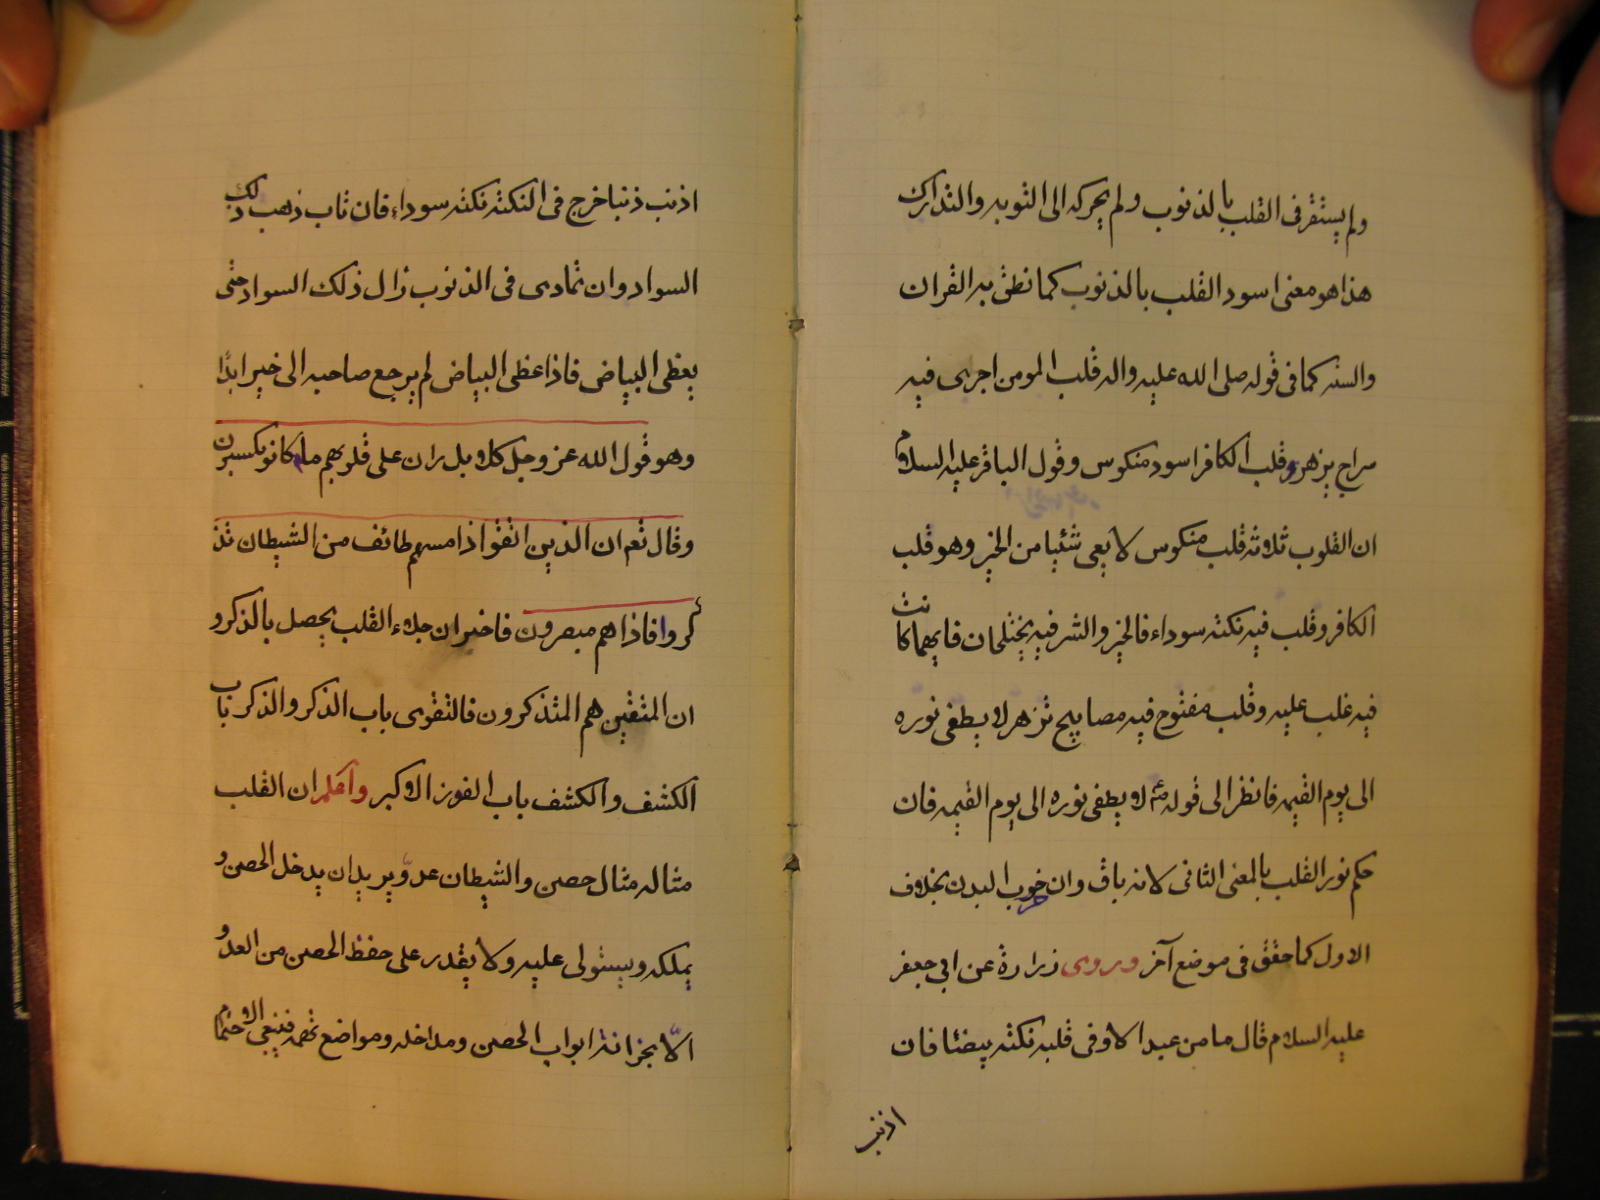 ولم يستقر فى القلب بالذنوب ولم يحركه الى التوبه والتدارك
هذا هو معنى اسود القلب بالذنوب كما نطق به القران
والسنه كما فى قوله صلى الله عليه واله قلب المومن اجرى فيه
سراج يزهر وقلب الكافر اسود منكوس وقول الباقر عليه السلام
ان القلوب ثلاثه قلب منكوس لا يعى شئيا من الخير وهو قلب
الكافر وقلب فيه نكته سوداء فالخير والشر فيه يختلجان فايهما كانت
فيه غلب عليه وقلب مفتوح فيه مصابيح تزهر لا يطفى نوره
الى يوم القيمه فانظر الى قوله عم لا يطفى نوره الى يوم القيمه فان
حكم نور القلب بالمعنى الثانى لانه باق وان خرب البدن بخلاف
الاول كما حقق فى موضع آخر وروى زرارة عن ابى جعفر
عليه السلام قال ما من عبد الا وفى قلبه نكته بيضئا فان
اذنب
اذنب ذنبا خرج فى النكته نكته سوداء فان تاب ذهب ذلك
السواد وان تمادى فى الذنوب زال ذلك السواد حتى
يغطى البياض فاذا غطى البياض لم يرجع صاحبه الى خير ابدًا
وهو قول الله عز وجل كلا بل ران على قلوبهم ما كانو يكسبون
وقال تعم ان الذين اتقوا اذا مسهم طائف من الشيطان تذ
كروا فاذا هم مبصرون فاخبر ان جلاء القلب يحصل بالذكر و
ان المتقين هم المتذكرون فالتقوى باب الذكر والذكر باب
الكشف والكشف باب الفوز الاكبر واعلم ان القلب
مثاله مثال حصن والشيطان عدوّ يريد ان يدخل الحصن و
يملكه ويستولى عليه ولا يقدر على حفظ الحصن من العدو
الّا بخزانة ابواب الحصن ومداخله ومواضع ثلمه فينبغى الاهتمام